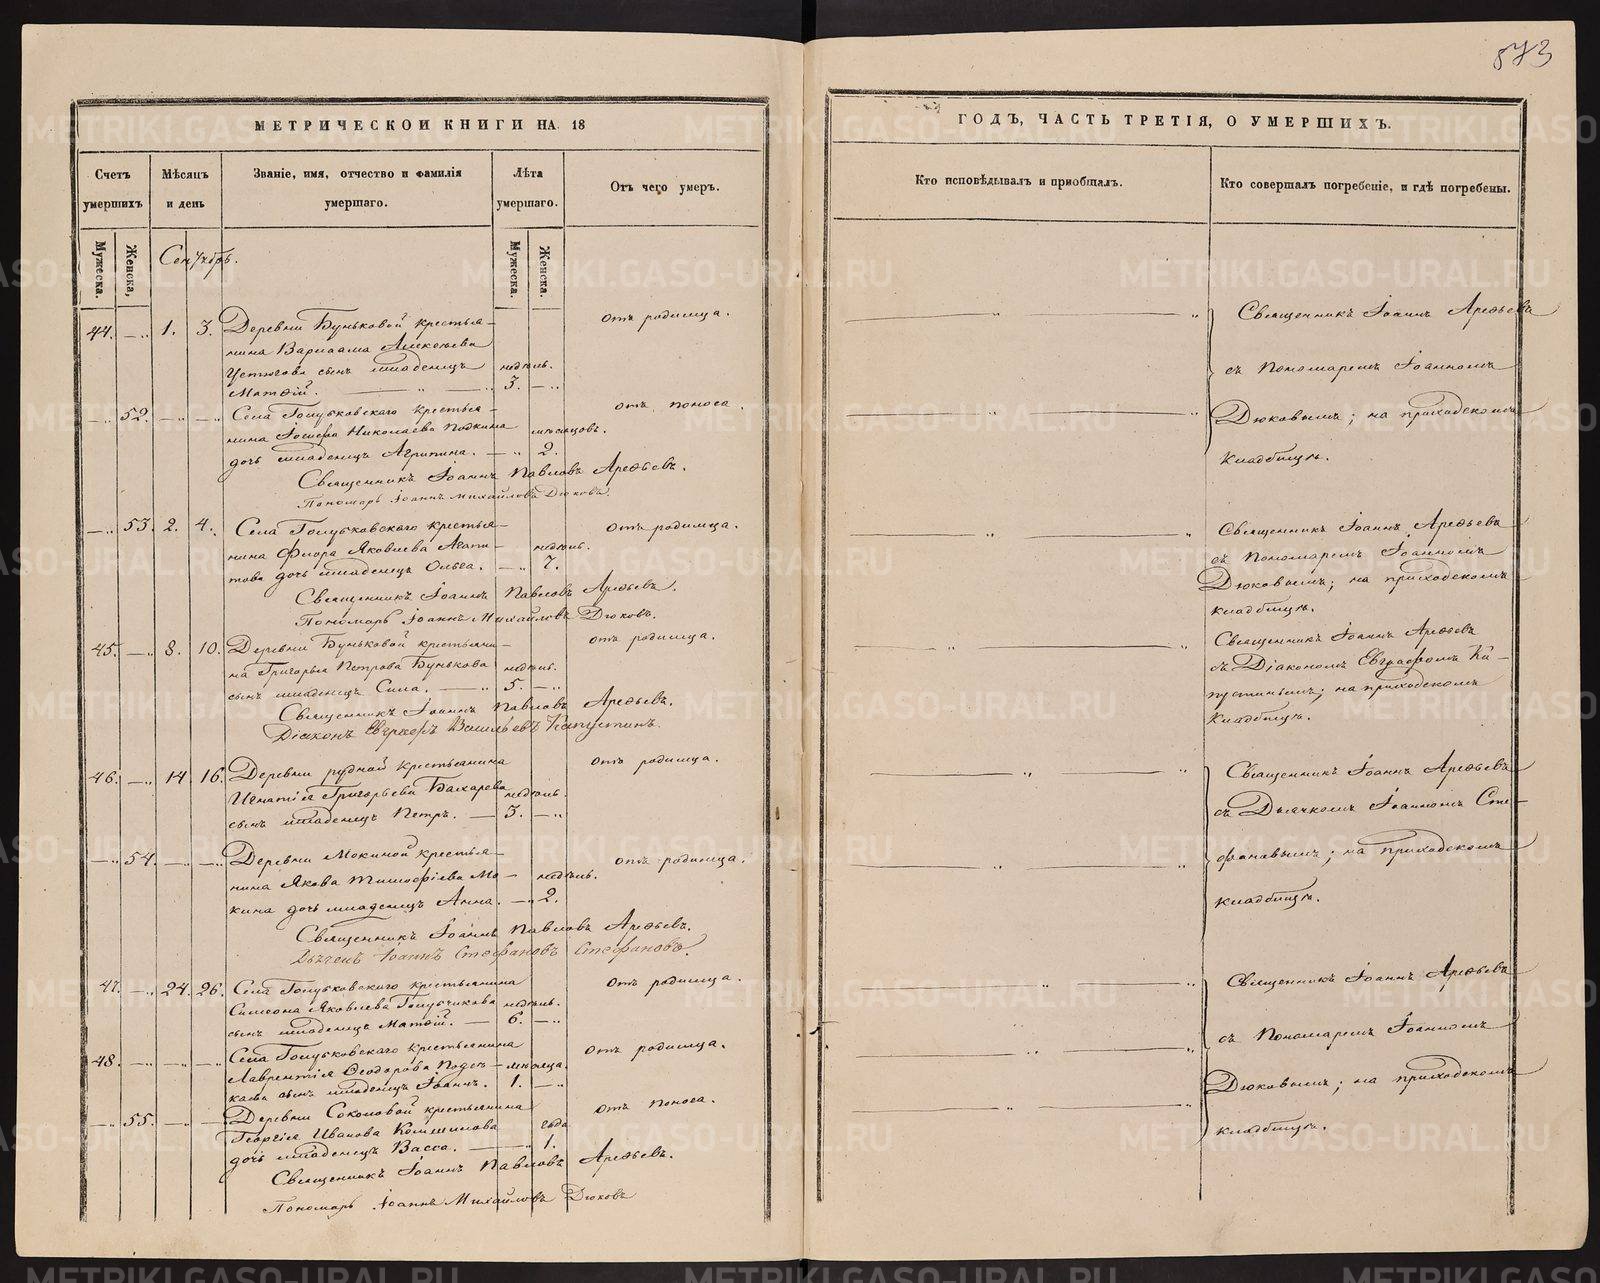 873
МЕТРИЧЕСКОЙ КНИГИ НА 18
ГОДЪ, ЧАСТЬ ТРЕТІЯ, О УМЕРШИХЪ.
Счетъ умершихъ
Мѣсяцъ и день
Званіе, имя, отчество и фамилія умершаго.
Лѣта умершаго.
Отъ чего умеръ.
Кто исповѣдывалъ и пріобщалъ.
Кто совершалъ погребеніе, и гдѣ погребены.
Мужеска.
Женска,
Мужеска.
Женска.
Сентябрь.
44. 1. 3. Деревни Буньковой крестья-
нина Варлаама Алексѣева
сынъ младенецъ недѣль.
Матѳій. 3.
отъ родимца.
52. Села Голубковскаго крестья-
нина Іосифа Николаева мѣсяцовъ.
дочь младенецъ Агрипина. 2.
отъ поноса.
Священникъ Іоаннъ Павловъ Арефьевъ.
Пономарь Іоаннъ Михайловъ Дюковъ.
Священникъ Іоаннъ Арефьевъ
съ Пономаремъ Іоанномъ
Дюковымъ; на приходскомъ
кладбищѣ.
53. 2. 4. Села Голубковскаго крестья-
нина Флора Яковлева Агапи- недѣль.
това дочь младенецъ Ольга. 7.
отъ родимца.
Священникъ Іоаннъ Павловъ Арефьевъ.
Пономарь Іоаннъ Михайловъ Дюковъ.
Священникъ Іоаннъ Арефьевъ
съ Пономаремъ Іоанномъ
Дюковымъ; на приходскомъ
кладбищѣ.
45. 8. 10. Деревни Буньковой крестьяни-
на Григорья Петрова Бунькова недѣль.
сынъ младенецъ Сила. 5.
отъ родимца.
Священникъ Іоаннъ Павловъ Арефьевъ.
Діаконъ Васильевъ Капустинъ.
Священникъ Іоаннъ Арефьевъ
съ Діакономъ Евграфомъ Ка-
пустинымъ; на приходскомъ
кладбищѣ.
46. 14. 16. Деревни рудной крестьянина
Игнатія Григорьева Бахарева недѣль.
сынъ младенецъ Петръ. 3.
отъ родимца.
54. Деревни Мокиной крестья-
нина Якова Тимофѣева Мо- недѣль.
кина дочь младенецъ Анна. 2.
отъ родимца.
Священникъ Іоаннъ Павловъ Арефьевъ.
Дьячекъ Іоаннъ Стефановъ Стефановъ.
Священникъ Іоаннъ Арефьевъ
съ Дьячкомъ Іоанномъ Сте-
фановымъ; на приходскомъ
кладбищѣ.
47. 24. 26. Села Голубковскаго крестьянина
Симеона Яковлева Голубчикова недѣль.
сынъ младенецъ Матѳій. 6.
отъ родимца.
48. Села Голубковскаго крестьянина
Лаврентія Ѳеодорова мѣсяца.
сынъ младенецъ Іоаннъ. 1.
отъ родимца.
55. Деревни Соколовой крестьянина
Георгія Иванова года
дочь младенецъ Васса. 1.
отъ поноса.
Священникъ Іоаннъ Павловъ Арефьевъ.
Пономарь Іоаннъ Михайловъ Дюковъ
Священникъ Іоаннъ Арефьевъ
съ Пономаремъ Іоанномъ
Дюковымъ; на приходскомъ
кладбищѣ.
METRIKI.GASO-URAL.RU